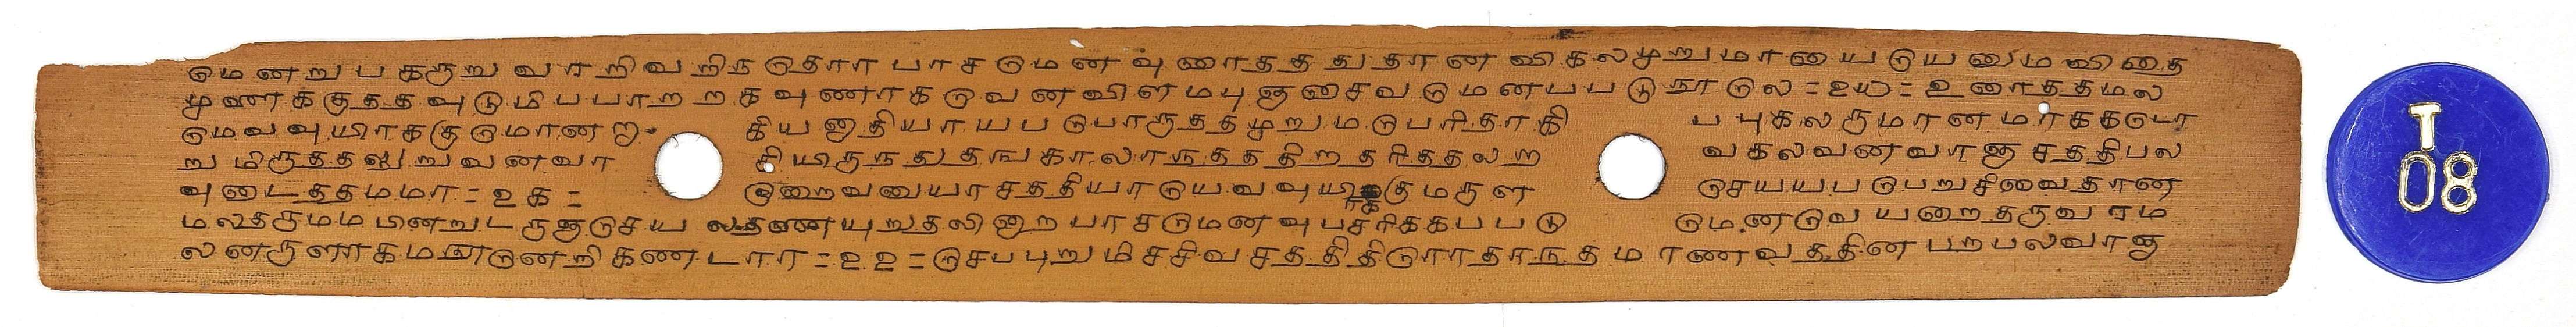 மெனறு பகருறு வாறிவறிந தொரா பாசமென வுரைதத துதான விகலமுறுமாயை யெனும விதை
முளைக்குதத வுமெிபபாறறகவுணாக வெனவிளமபுஞசைவ மெனபப நூலெ = ௨௰ = உரைததமல
மெவவுயிாககுமொனறு
கியஅநதியாயப பொருததமுறுமபெரிதாகி
பபுகலருமானமாககபொ
றுமிருததஞறுவனவா
சியிருநதுதஙகாலாநதததிறதரிததலற
வகலவனவாஞசததிபல
வுடைததமமா = ௨௧ =
இறைவனையாசததியாயெவவுயிாககுமருள
செயயப பெறுசிவைதான
மலதருமமபினறுடருஞசெய லதனையுறுதலினற பாசமென வுபசரிககபபடு
மெனவெ யறைதருவாம
லனருளாகமஙனெறி கணடாா = ௨௨ = செபபுறுமிசசிவசததி திரொதாநதமாணவததின பறபலவாஞ
T
08